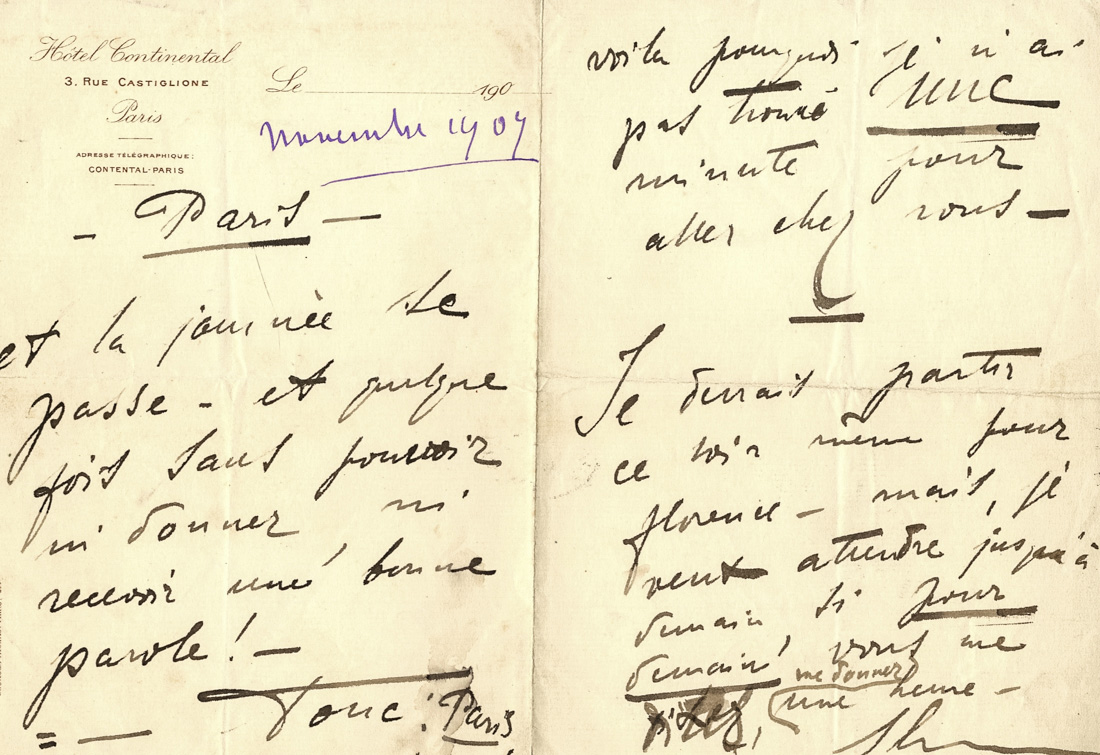 Hôtel Continental
3. RUE CASTIGLIONE
Paris
ADRESSE TÉLÉGRAPHIQUE:
CONTENTAL-PARIS
Le 190
Novembre 1909
— Paris —
et la journée se
passe - et quelque
fois sans pouvoir
ni donner ni
recevoir une bonne
parole! —
= — Donc: Paris
voila pourquoi je n'ai
pas trouvé une
minute pour
aller chez vous —
Je devrais partir
ce soir même pour
florence — mais, je
veux attendre jusqu'à
demain si pour
demain, vous me
me donnez
une heure —